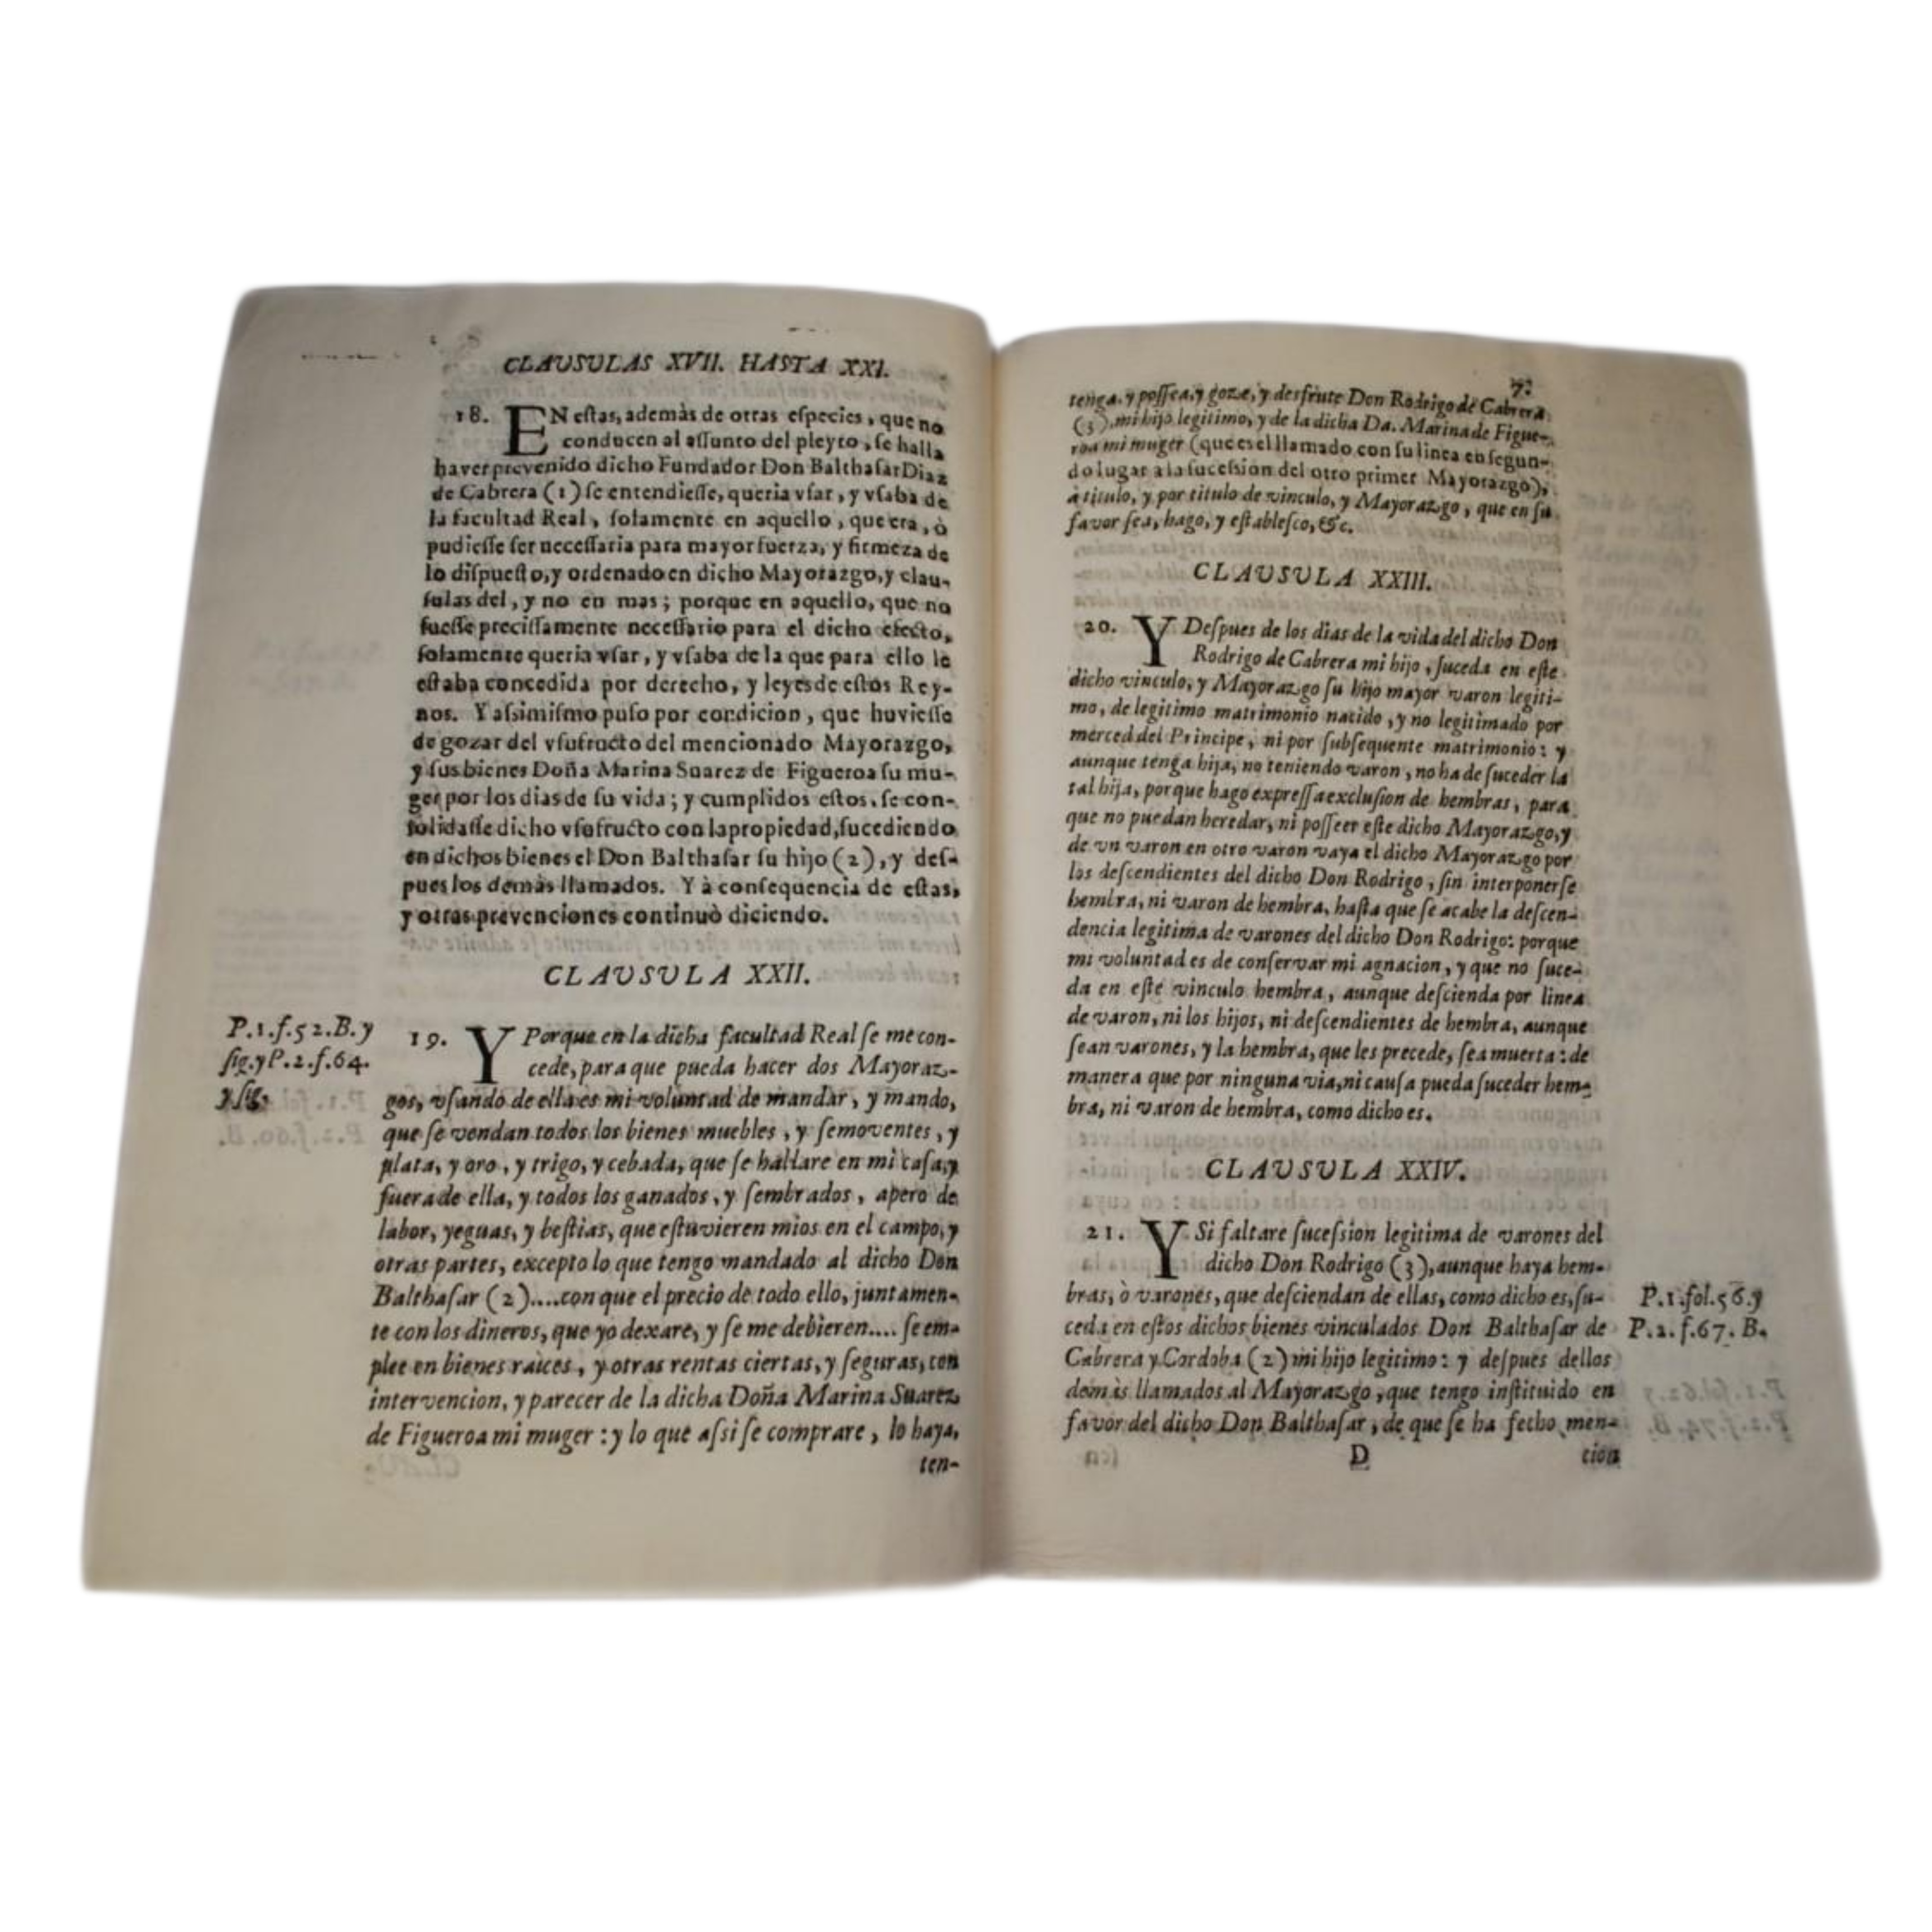 CLAUSULAS XVII. HASTA XXI.
18. EN eſtas, ademàs de otras eſpecies, que no
conducen al aſſunto del pleyto, ſe halla
haver prevenido dicho Fundador Don Balthaſar Diaz
de Cabrera (1) ſe entendieſſe, queria vſar, y vſaba de
la facultad Real, ſolamente en aquello, que era, ò
pudieſſe ſer neceſſaria para mayor fuerza, y firmeza de
lo diſpueſto, y ordenado en dicho Mayorazgo, y clau-
ſulas del, y no en mas; porque en aquello, que no
fueſſe preciſſamente neceſſario para el dicho efecto,
ſolamente queria vſar, y vſaba de la que para ello le
eſtaba concedida por derecho, y leyes de eſtos Rey-
nos. Y aſsimiſmo puſo por condicion, que huvieſſe
de gozar del vſufructo del mencionado Mayorazgo,
y ſus bienes Doña Marina Suarez de Figueroa ſu mu-
ger por los dias de ſu vida; y cumplidos eſtos, ſe con-
ſolidaſſe dicho vſufructo con la propiedad, ſucediendo
en dichos bienes el Don Balthaſar ſu hijo (2), y deſ-
pues los demàs llamados. Y à conſequencia de eſtas,
y otras prevenciones continuò diciendo.
CLAUSULA XXII.
P.1.f.52.B.y
ſig.y P.2.f.64.
y ſig.
19. Y Porque en la dicha facultad Real ſe me con-
cede, para que pueda hacer dos Mayoraz-
gos, vſando de ella es mi voluntad de mandar, y mando,
que ſe vendan todos los bienes muebles, y ſemoventes, y
plata, y oro, y trigo, y cebada, que ſe hallare en mi caſa, y
fuera de ella, y todos los ganados, y ſembrados, apero de
labor, yeguas, y beſtias, que eſtuvieren mios en el campo, y
otras partes, excepto lo que tengo mandado al dicho Don
Balthaſar (2)....con que el precio de todo ello, juntamen-
te con los dineros, que yo dexare, y ſe me debieren.... ſe em-
plee en bienes raices, y otras rentas ciertas, y ſeguras, con
intervencion, y parecer de la dicha Doña Marina Suarez
de Figueroa mi muger: y lo que aſsi ſe comprare, lo haya,
ten-
7.
tenga, y poſſea, y goze, y desfrute Don Rodrigo de Cabrera
(3), mi hijo legitimo, y de la dicha Da. Marina de Figue-
roa mi muger (que es el llamado con ſu linea en ſegun-
do lugar a la ſuceſsion del otro primer Mayorazgo),
à titulo, y por titulo de vinculo, y Mayorazgo, que en ſu
favor ſea, hago, y eſtableſco, &c.
CLAUSULA XXIII.
20. Y Deſpues de los dias de la vida del dicho Don
Rodrigo de Cabrera mi hijo, ſuceda en eſte
dicho vinculo, y Mayorazgo ſu hijo mayor varon legiti-
mo, de legitimo matrimonio nacido, y no legitimado por
merced del Principe, ni por ſubſequente matrimonio: y
aunque tenga hija, no teniendo varon, no ha de ſuceder la
tal hija, porque hago expreſſa excluſion de hembras, para
que no puedan heredar, ni poſſeer eſte dicho Mayorazgo, y
de vn varon en otro varon vaya el dicho Mayorazgo por
los deſcendientes del dicho Don Rodrigo, ſin interponerſe
hembra, ni varon de hembra, haſta que ſe acabe la deſcen-
dencia legitima de varones del dicho Don Rodrigo: porque
mi voluntad es de conſervar mi agnacion, y que no ſuce-
da en eſte vinculo hembra, aunque deſcienda por linea
de varon, ni los hijos, ni deſcendientes de hembra, aunque
ſean varones, y la hembra, que les precede, ſea muerta: de
manera que por ninguna via, ni cauſa pueda ſuceder hem-
bra, ni varon de hembra, como dicho es.
CLAUSULA XXIV.
21. Y Si faltare ſuceſsion legitima de varones del
dicho Don Rodrigo (3), aunque haya hem-
bras, ò varones, que deſciendan de ellas, como dicho es, ſu-
ceda en eſtos dichos bienes vinculados Don Balthaſar de
Cabrera y Cordoba (2) mi hijo legitimo: y deſpues dellos
demàs llamados al Mayorazgo, que tengo inſtituido en
favor del dicho Don Balthaſar, de que ſe ha fecho men-
P.1.fol.56.y
P.2.f.67.B.
D
cion